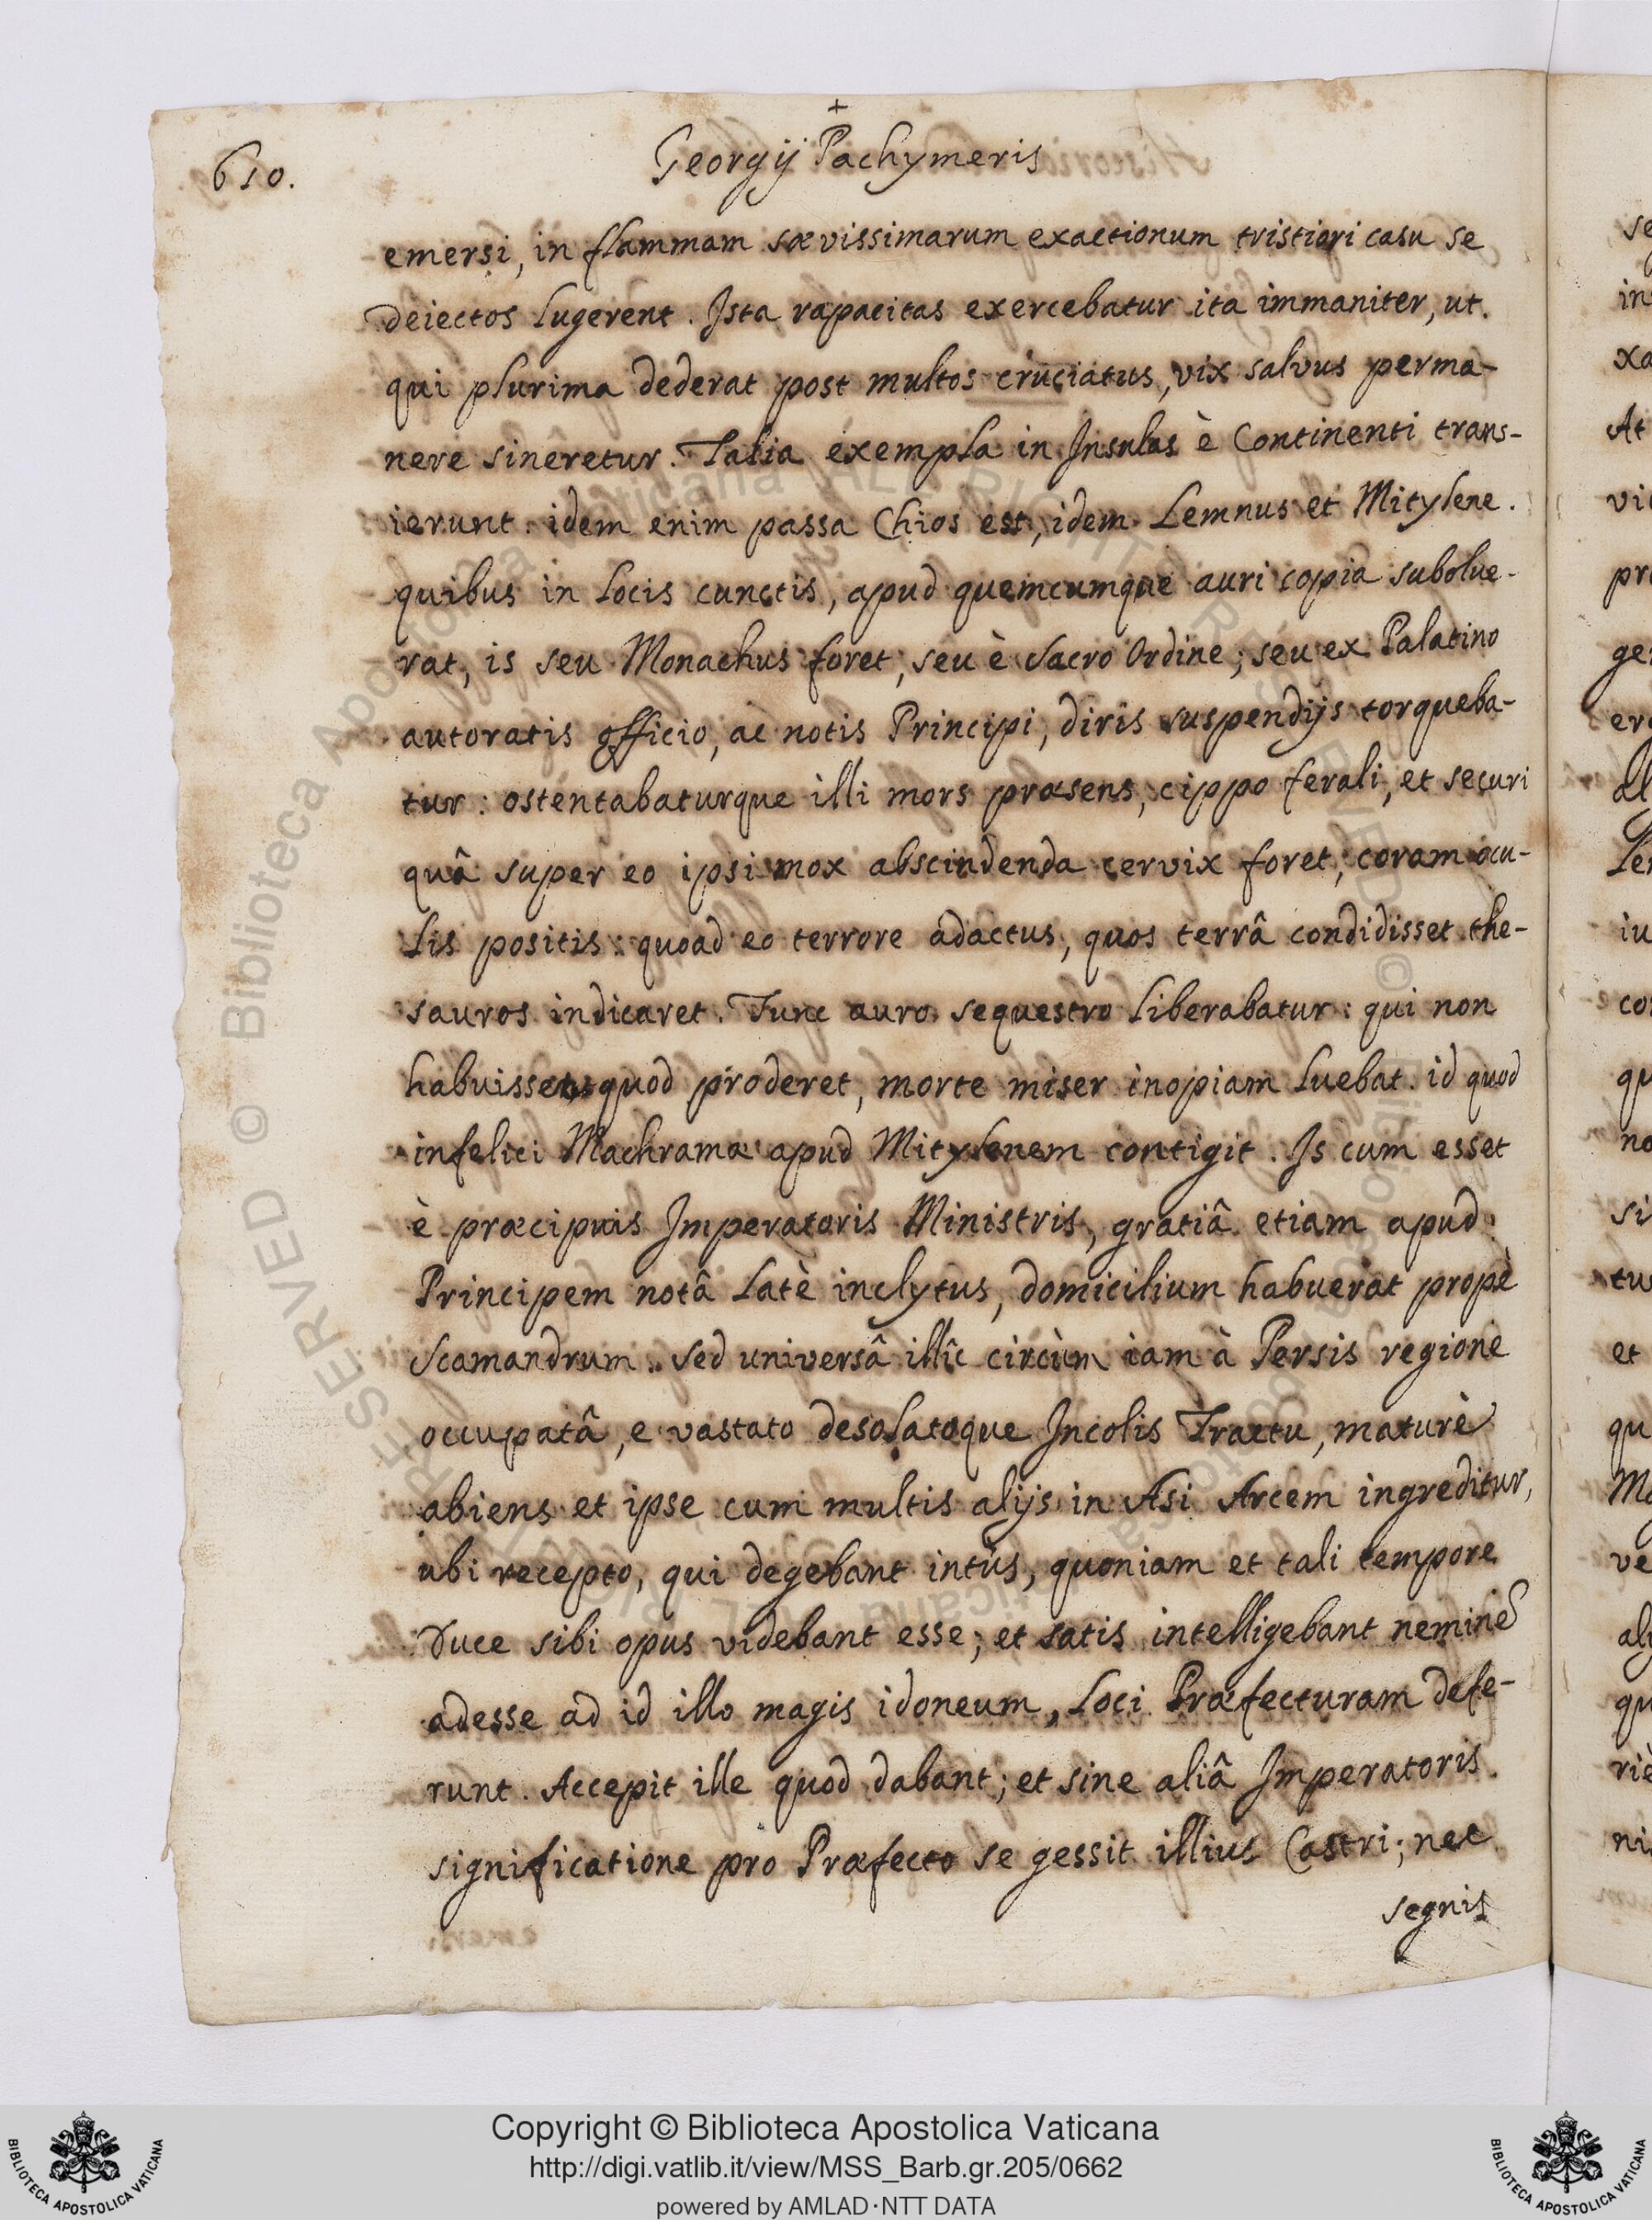 +
610.
Georgij Pachymeris
emersi, in flammam sævissimarum exactionum tristiori casu se
deiectos lugerent. Ista rapacitas exercebatur ita immaniter, ut
qui plurima dederat post multos cruciatus, vix salvus perma-
nere sineretur. Talia exempla in Insulas è Continenti trans-
ierunt. idem enim passa Chios est, idem Lemnus et Mitylene.
quibus in locis cunctis, apud quemcumque auri copia subolue-
rat, is seu Monachus foret, seu è Sacro Ordine; seu ex Palatino
autoratis officio, ac notis Principi, diris suspendijs torqueba-
tur: ostentabaturque illi mors præsens, cippo ferali, et securi
quâ super eo ipsi mox abscindenda cervix foret, coram ocu-
lis positis: quoad eo terrore adactus, quos terrâ condidisset the-
sauros indicaret. Tunc auro sequestro liberabatur: qui non
habuisset quod proderet, morte miser inopiam luebat. id quod
infelici Machramæ apud Mitylenem contigit. Is cum esset
è præcipuis Imperatoris Ministris, gratiâ etiam apud
Principem notâ latè inclytus, domicilium habuerat propè
Scamandrum. sed universâ illîc circùm iam à Persis regione
occupatâ, e vastato desolatoque Incolis Tractu, maturè
abiens et ipse cum multis alijs in Asi Arcem ingreditur,
ubi recepto, qui degebant intùs, quoniam et tali tempore
Duce sibi opus videbant esse; et satis intelligebant neminē
adesse ad id illo magis idoneum, loci Præfecturam defe-
runt. Accepit ille quod dabant; et sine aliâ Imperatoris
significatione pro Præfecto se gessit illius Castri; nec
segnis
Copyright © Biblioteca Apostolica Vaticana
http://digi.vatlib.it/view/MSS_Barb.gr.205/0662
powered by AMLAD·NTT DATA
BIBLIOTECA APOSTOLICA VATICANA
BIBLIOTECA APOSTOLICA VATICANA